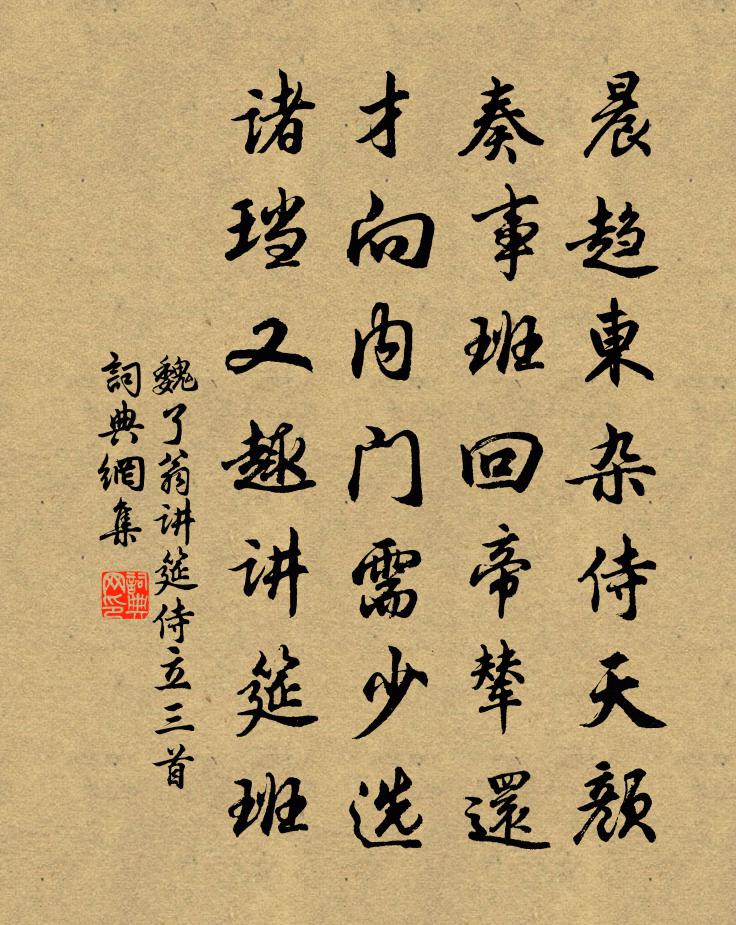 晨趋東杂侍天顔
奏事班回帝辇還
才向内门需少选
诸珰又趣讲筵班
魏了翁讲筵侍立三首
詞典網集
詞典网印